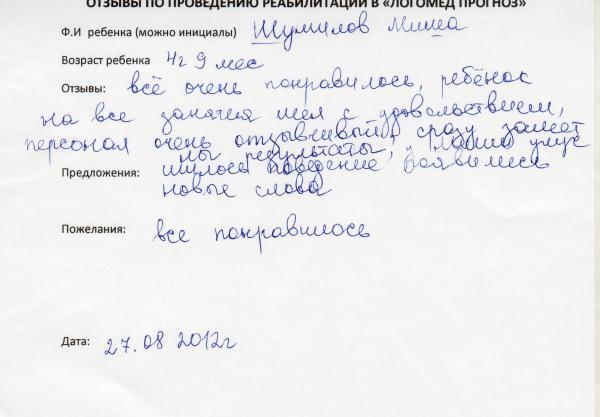 ОТЗЫВЫ ПО ПРОВЕДЕНИЮ РЕАБИЛИТАЦИИ В «ЛОГОМЕД ПРОГНОЗ»
Ф.И ребенка (можно инициалы) Шумилов Миша
Возраст ребенка 4г 9 мес
Отзывы: всё очень понравилось, ребёнок
на все занятия шел с удовольствием,
персонал очень отзывчивый, сразу замет
ны результаты, улуч
Предложения: шилось поведение появились
новые слова
Пожелания: все понравилось
Дата: 27.08 2012г